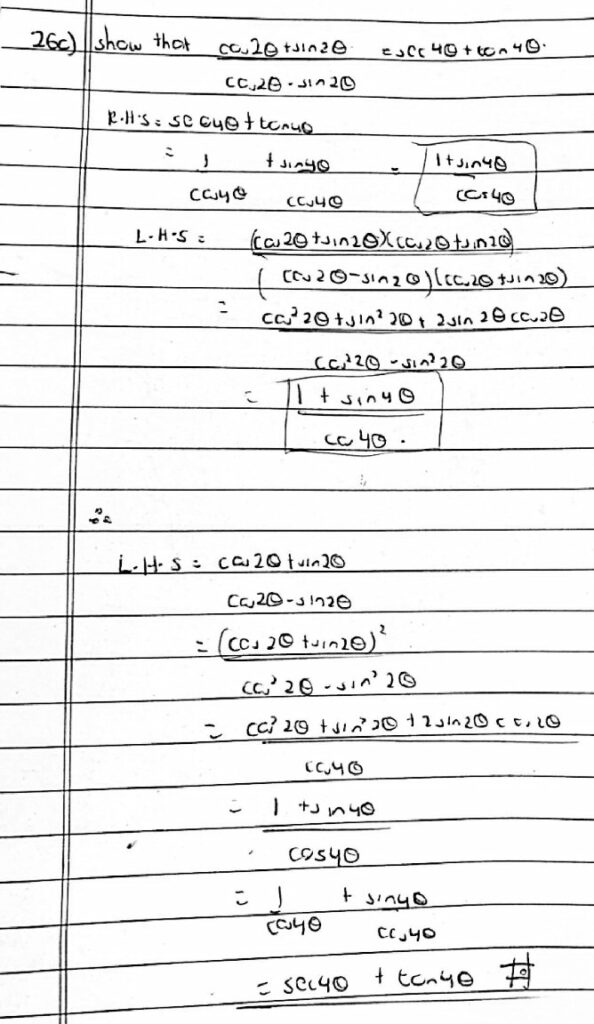 26c) show that cos2θ + sin2θ = sec4θ + tan4θ.
cos2θ - sin2θ
R.H.S = sec4θ + tan4θ
= 1 + sin4θ = 1 + sin4θ
cos4θ cos4θ cos4θ
L.H.S = (cos2θ + sin2θ)(cos2θ + sin2θ)
(cos2θ - sin2θ)(cos2θ + sin2θ)
= cos²2θ + sin²2θ + 2sin2θcos2θ
cos²2θ - sin²2θ
= 1 + sin4θ
cos4θ.
∴
L.H.S = cos2θ + sin2θ
cos2θ - sin2θ
= (cos2θ + sin2θ)²
cos²2θ - sin²2θ
= cos²2θ + sin²2θ + 2sin2θcos2θ
cos4θ
= 1 + sin4θ
cos4θ
= 1 + sin4θ
cos4θ cos4θ
= sec4θ + tan4θ #